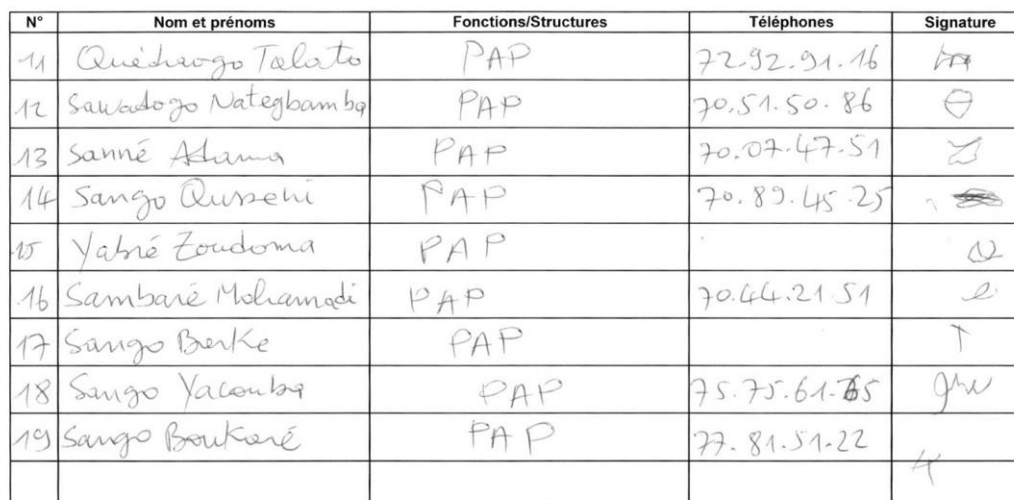 N° Nom et prénoms Fonctions/Structures Téléphones Signature
11 Ouédraogo Talato PAP 72.92.91.16
12 Sawadogo Nategbamba PAP 70.51.50.86
13 Sanné Adama PAP 70.07.47.51
14 Sango Ousseni PAP 70.89.45.25
15 Yabré Zoudoma PAP
16 Sambaré Mohamadi PAP 70.44.21.51
17 Sango Berke PAP
18 Sango Yacouba PAP 75.75.61.65
19 Sango Boukaré PAP 77.81.51.22